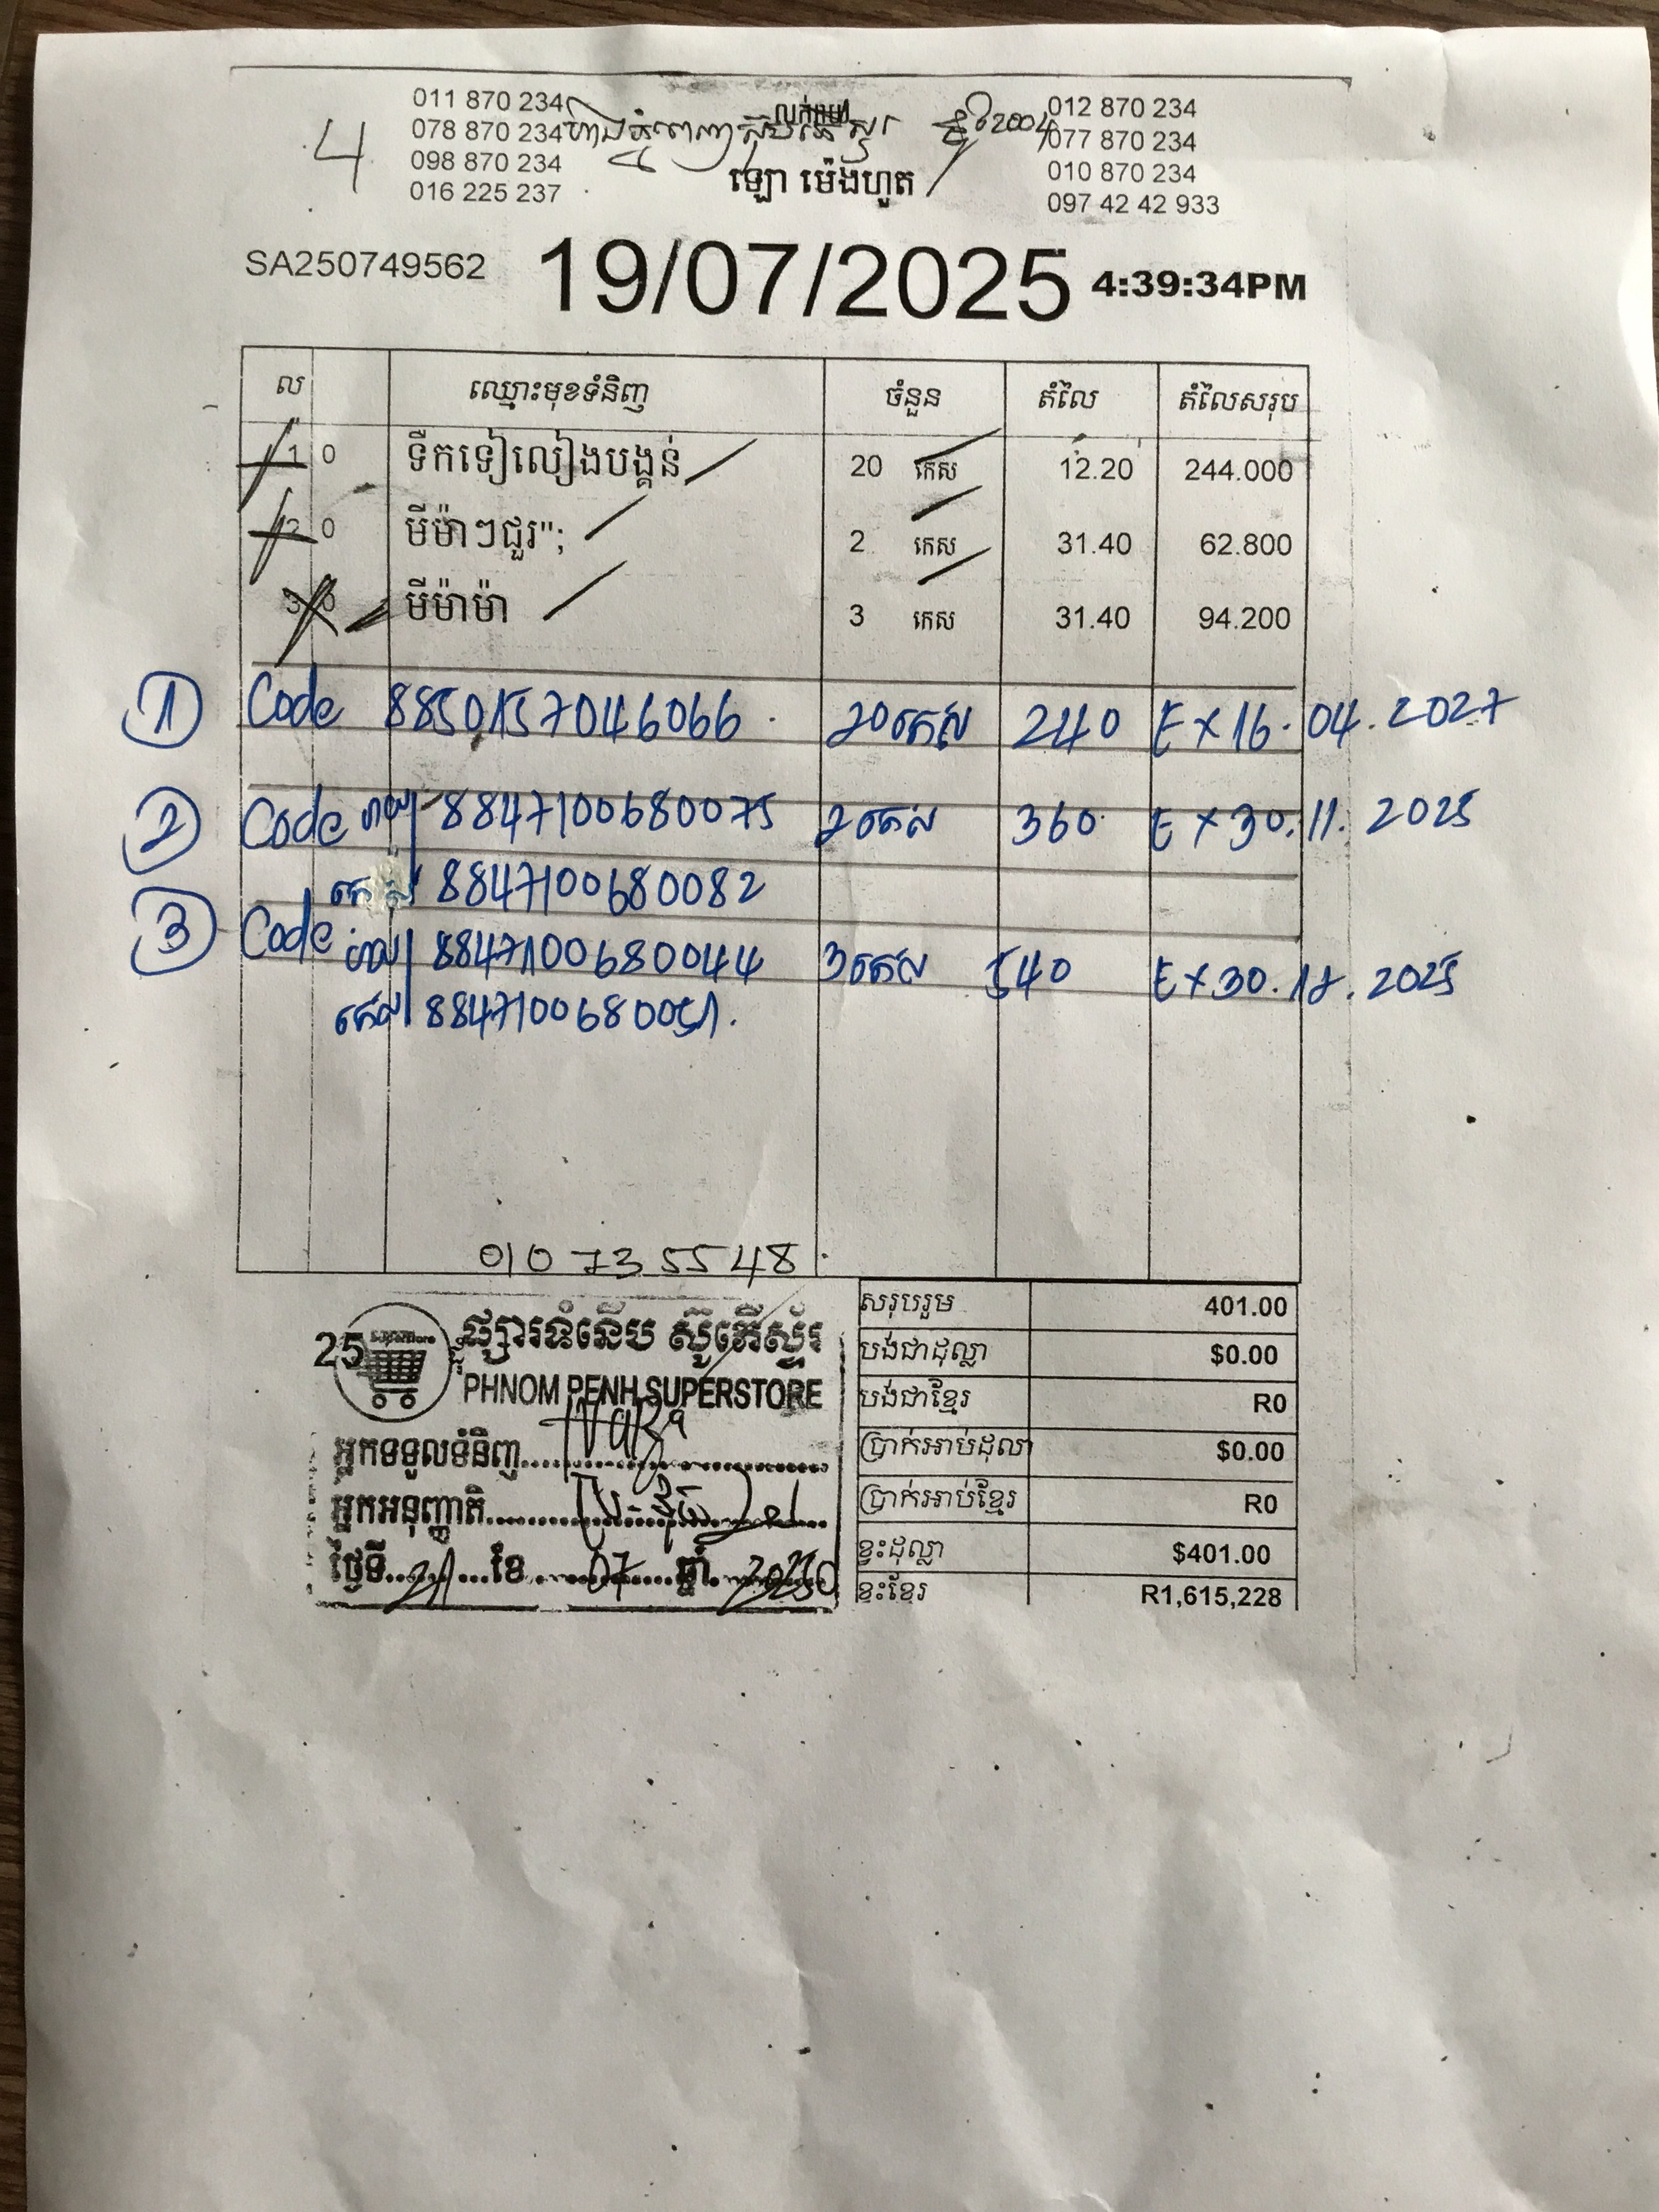 011 870 234 លក់ដុំ 012 870 234
4 078 870 234 2004 077 870 234
098 870 234 010 870 234
ឡោ ម៉េងហួត
016 225 237 097 42 42 933
SA250749562 19/07/2025 4:39:34PM
ល ឈ្មោះមុខទំនិញ ចំនួន តំលៃ តំលៃសរុប
1 0 ទឹកទៀលៀងបង្គន់ 20 កេស 12.20 244.000
2 0 មីម៉ាៗជួរ"; 2 កេស 31.40 62.800
3 0 មីម៉ាម៉ា 3 កេស 31.40 94.200
1 Code 8850157046066 20កេស 240 EX 16.04.2027
2 Code 8847100680075 2កេស 360 EX 30.11.2025
កេស 8847100680082
3 Code 8847100680044 3កេស 540 EX 30.12.2025
កេស 8847100680051.
010 73 55 48
សរុបរួម 401.00
បង់ជាដុល្លា $0.00
បង់ជាខ្មែរ R0
ប្រាក់អាប់ដុលា $0.00
ប្រាក់អាប់ខ្មែរ R0
ខ្វះដុល្លា $401.00
ខ្វះខ្មែរ R1,615,228
25 ផ្សារទំនើប ស៊ូភើស្ទ័រ
PHNOM PENH SUPERSTORE
អ្នកទទួលទំនិញ
អ្នកអនុញ្ញាតិ
ថ្ងៃទី 21 ខែ 07 ឆ្នាំ 2025